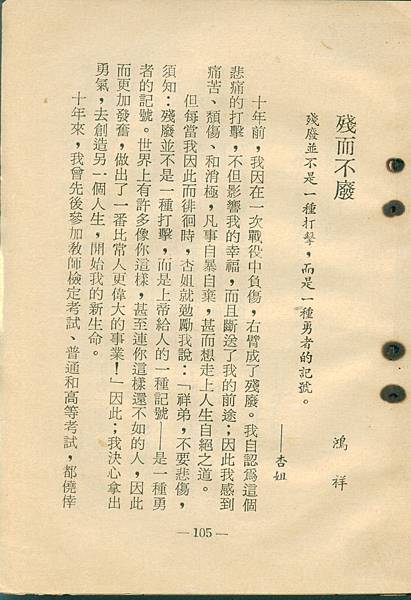 殘而不廢
鴻祥
殘廢並不是一種打擊，而是一種勇者的記號。
——杏姐
十年前，我因在一次戰役中負傷，右臂成了殘廢。我自認爲這個
悲痛的打擊，不但影響我的幸福，而且斷送了我的前途；因此我感到
痛苦、頹傷、和消極，凡事自暴自棄，甚而想走上人生自絕之道。
但每當我因此而徘徊時，杏姐就勉勵我說：「祥弟，不要悲傷，
須知：殘廢並不是一種打擊，而是上帝給人的一種記號——是一種勇
者的記號。世界上有許多像你這樣，甚至連你這樣還不如的人，因此
而更加發奮，做出了一番比常人更偉大的事業！」因此；我決心拿出
勇氣，去創造另一個人生，開始我的新生命。
十年來，我曾先後參加敎師檢定考試、普通和高等考試，都僥倖
—105—